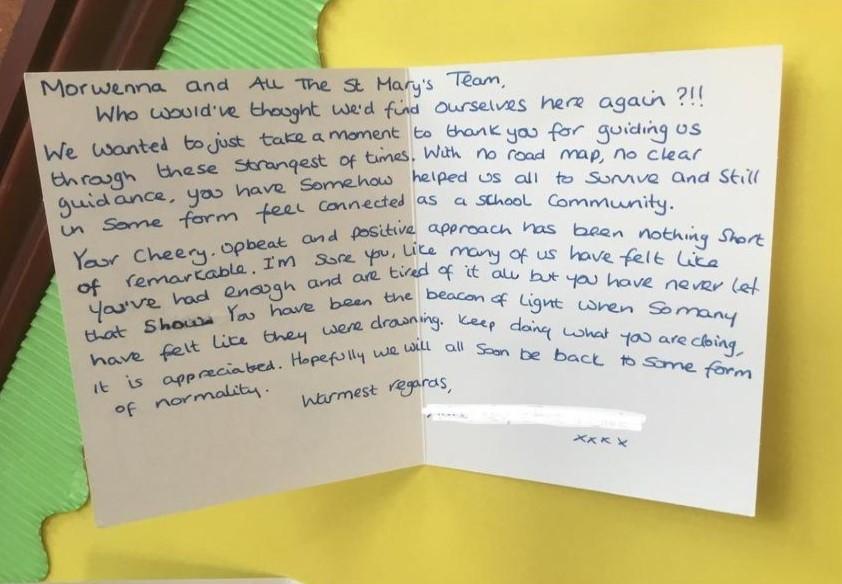 Morwenna and All The St Mary's Team,
Who would've thought we'd find ourselves here again ?!!
We wanted to just take a moment to thank you for guiding us
through these strangest of times. With no road map, no clear
guidance, you have somehow helped us all to survive and still
in some form feel connected as a school community.
Your cheery, upbeat and positive approach has been nothing short
of remarkable. I'm sure you, like many of us have felt like
you've had enough and are tired of it all but you have never let
that show. You have been the beacon of light when so many
have felt like they were drowning. Keep doing what you are doing,
it is appreciated. Hopefully we will all soon be back to some form
of normality.
Warmest regards,
xxxx